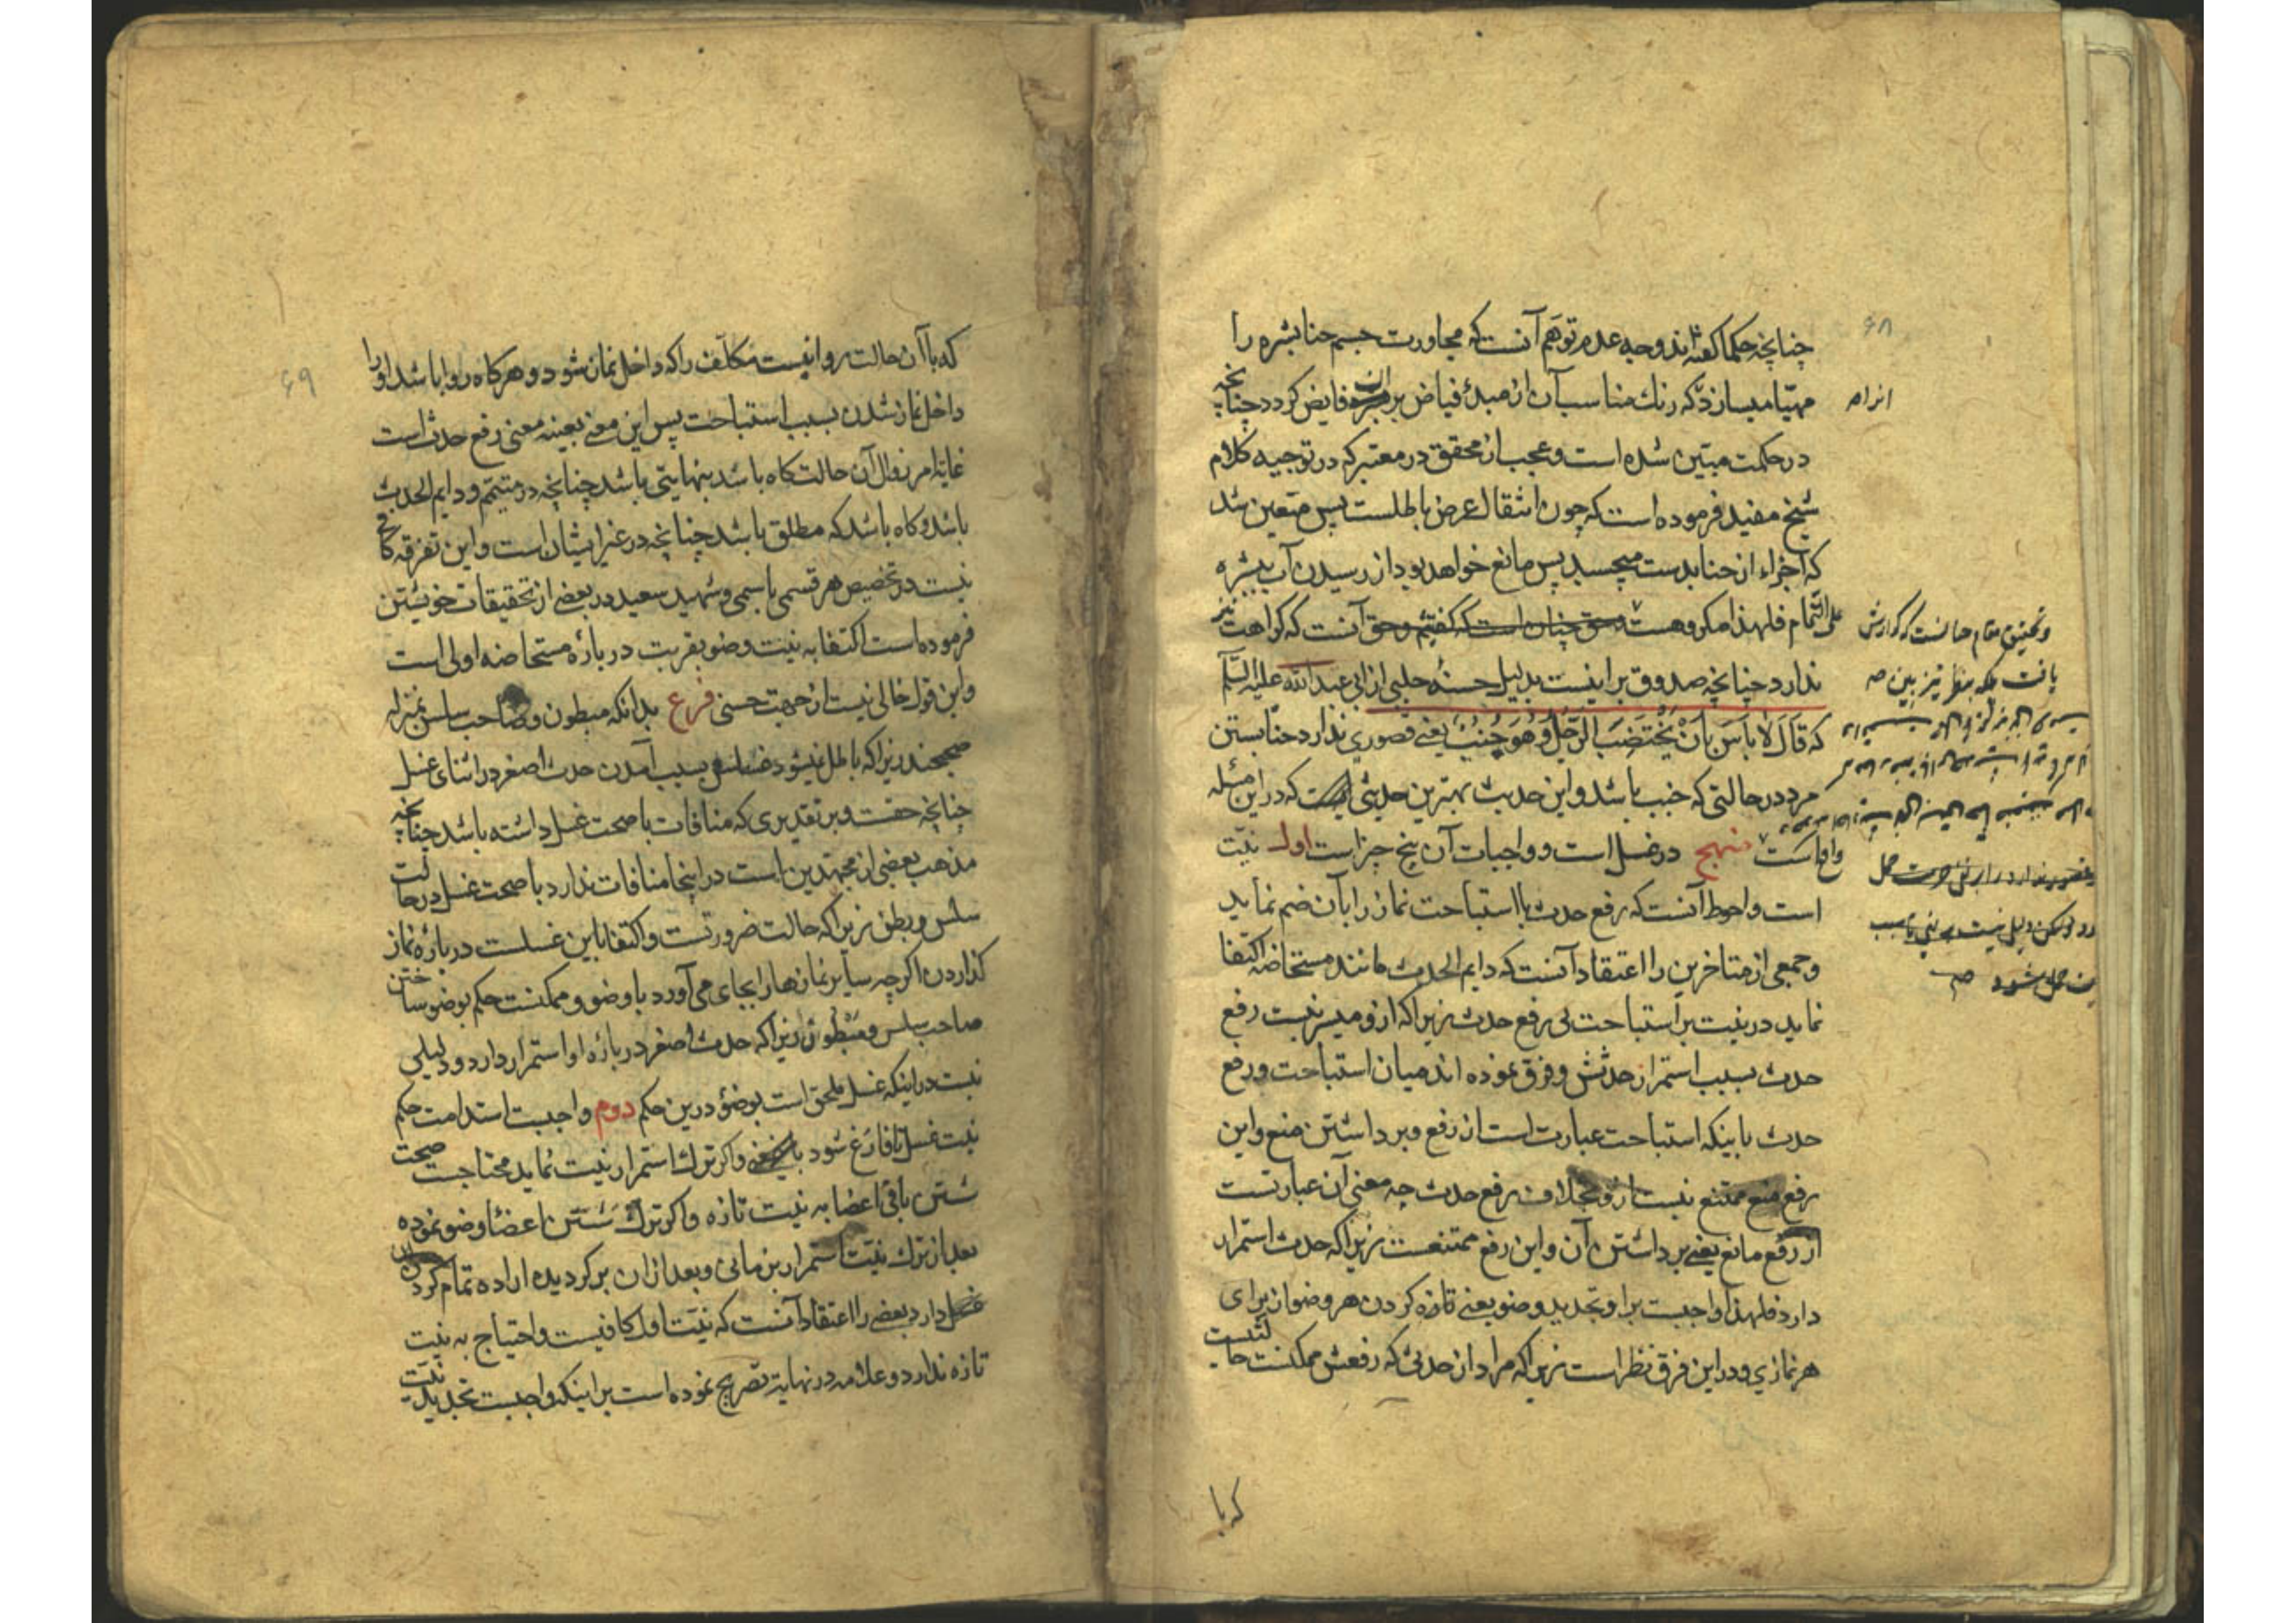 ۶۸
چنانچه حکما گفته‌اند و وجه عدم توهم آنست که مجاورت جسم حنا بشره را
مهیّا میسازد که رنک مناسب آن از مبدء فیاض بر آن فایض کردد چنانچه
در حکمت مبیّن شده است و عجب از محقق در معتبر که در توجیه کلام
شیخ مفید فرموده است که چون انتقال عرض باطلست پس متعین شد
که اجزاء از حنا بدست میچسبد پس مانع خواهد بود از رسیدن آب ببشره
علی التّمام فلهذا مکروهست و حق چنان است که کفتیم و حق آنست که کراهت نیز
ندارد چنانچه صدوق بر اینست بدلیل حسنهٔ حلبی از ابی عبد الله علیه السّلم
که قَالَ لَا بَاسَ بِاَنْ یَخْتَضِبَ الرَّجُلُ وَ هُوَ جُنُبٌ یعنی قصوری ندارد حنا بستن
مرد در حالتی که جنب باشد و این حدیث بهترین حدیثی است که در این مسئله
واقع است منهج در غسل است و واجبات آن پنج چیز است اول نیّت
است و احوط آنست که رفع حدث با استباحت نماز را بآن ضم نماید
و جمعی از متاخرین را اعتقاد آنست که دایم الحدث مانند مستحاضه اکتفا
نماید در نیت بر استباحت بی رفع حدث زیرا که ازو میسر نیست رفع
حدث بسبب استمرار حدثش و فرق نموده اند میان استباحت و رفع
حدث باینکه استباحت عبارت است از رفع و برداشتن منع و این
رفع منع ممتنع نیست ازو بخلاف رفع حدث چه معنی آن عبارتست
از رفع مانع یعنی برداشتن آن و این رفع ممتنعست زیرا که حدث استمرار
دارد فلهذا واجبست برا و تجدید وضو یعنی تازه کردن هر وضو از برای
هر نمازی و در این فرق نظر است زیرا که مراد از حدثی که رفعش ممکنست حالتیست
که با
۶۹
که با آن حالت روا نیست مکلّف را که داخل نماز شود و هر کاه روا باشد او را
داخل نماز شدن بسبب استباحت پس این معنی بعینه معنی رفع حدث است
غایة امر زوال آن حالت کاه باشد بنهایتی باشد چنانچه در متیمم و دایم الحدث
باشد و کاه باشد که مطلق باشد چنانچه در غیر ایشان است و این تفرقه کافی
نیست در تخصیص هر قسمی باسمی و شهید سعید در بعضی از تحقیقات خویشتن
فرموده است اکتفا به نیت وضو بقربت در بارهٔ مستحاضه اولی است
و این قول خالی نیست از جهت حسنی فرع بدانکه مبطون و صاحب سلس بمنزله
صحیحند زیرا که باطل نمیشود غسلش بسبب آمدن حدث اصغر در اثنای غسل
چنانچه حقست و بر تقدیری که منافات با صحت غسل داشته باشد چنانچه
مذهب بعضی از مجتهدین است در اینجا منافات ندارد با صحت غسل در حالت
سلس و بطن زیرا که حالت ضرورتست و اکتفا باین غسلست در بارهٔ نماز
کذاردن اکرچه سایر نمازها را بجای می‌آورد با وضو و ممکنست حکم بوضو ساختن
صاحب سلس و مبطون زیرا که حدث اصغر در بارهٔ او استمرار دارد و دلیلی
نیست در اینکه غسل ملحق است بوضو درین حکم دوم واجبست استدامت حکم
نیت غسل تا فارغ شود و اکر ترک استمرار نیت نماید محتاجست صحت
شستن باقی اعضا به نیت تازه و اکر ترک شستن اعضا وضو نموده
بعد از ترک نیّت استمرار بزمانی و بعد از ان بر کردیده اراده تمام کردن
غسل دارد بعضی را اعتقاد آنست که نیّت اول کافیست و احتیاج به نیت
تازه ندارد و علامه در نهایة تصریح نموده است بر اینکه واجبست تجدید نیّت